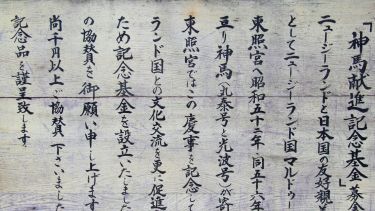 「神馬献進記念基金募金
ニュージーランドと日本国の友好親善
としてニュージーランド国マルドゥー
東照宮へ昭和五十二年同五十六年
亘り神馬(孔泰号と光波号)が寄
東照宮ではこの慶事を記念して
ランド国との文化交流を更に促進
ため記念基金を設立いたしました
の協賛を御願い申し上げます
尚千円以上ご協賛下さいました
記念品を謹呈致します